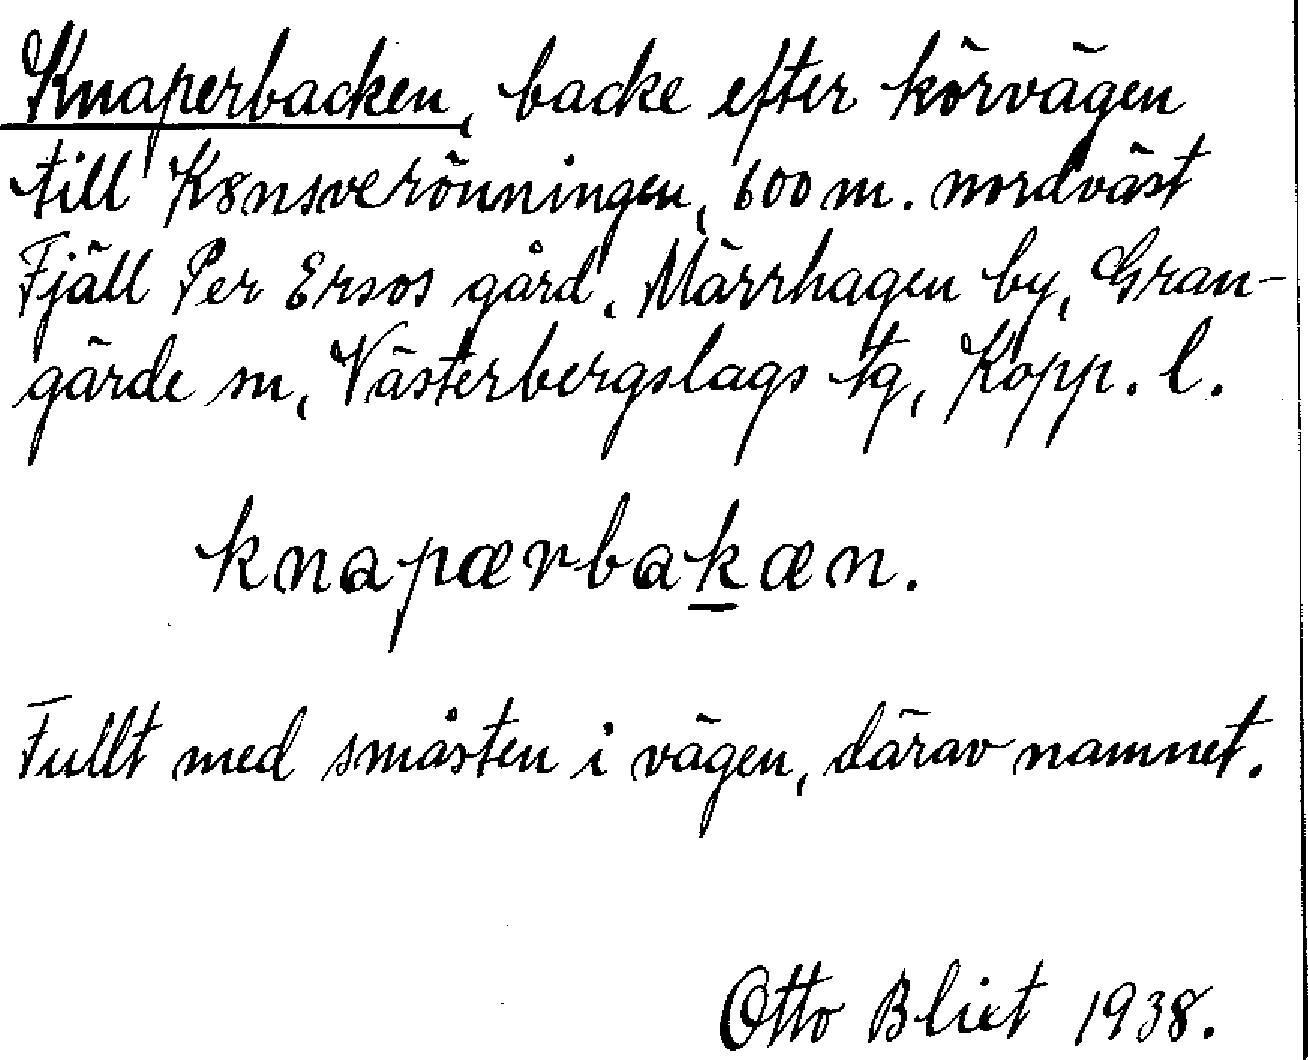 Knaperbacken, backe efter körvägen
till K8nsverönningen, 600 m. nordväst
Fjäll Per Ersos gård, Märrhagen by, Gran-
gärde sn, Västerbergslags tg, Kopp. l.
knapærbakæn.
Fullt med småsten i vägen, därav namnet.
Otto Blixt 1938.